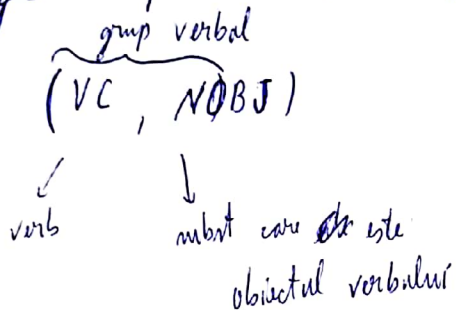 grup verbal
(VC, NOBJ)
verb subst care este
obiectul verbului